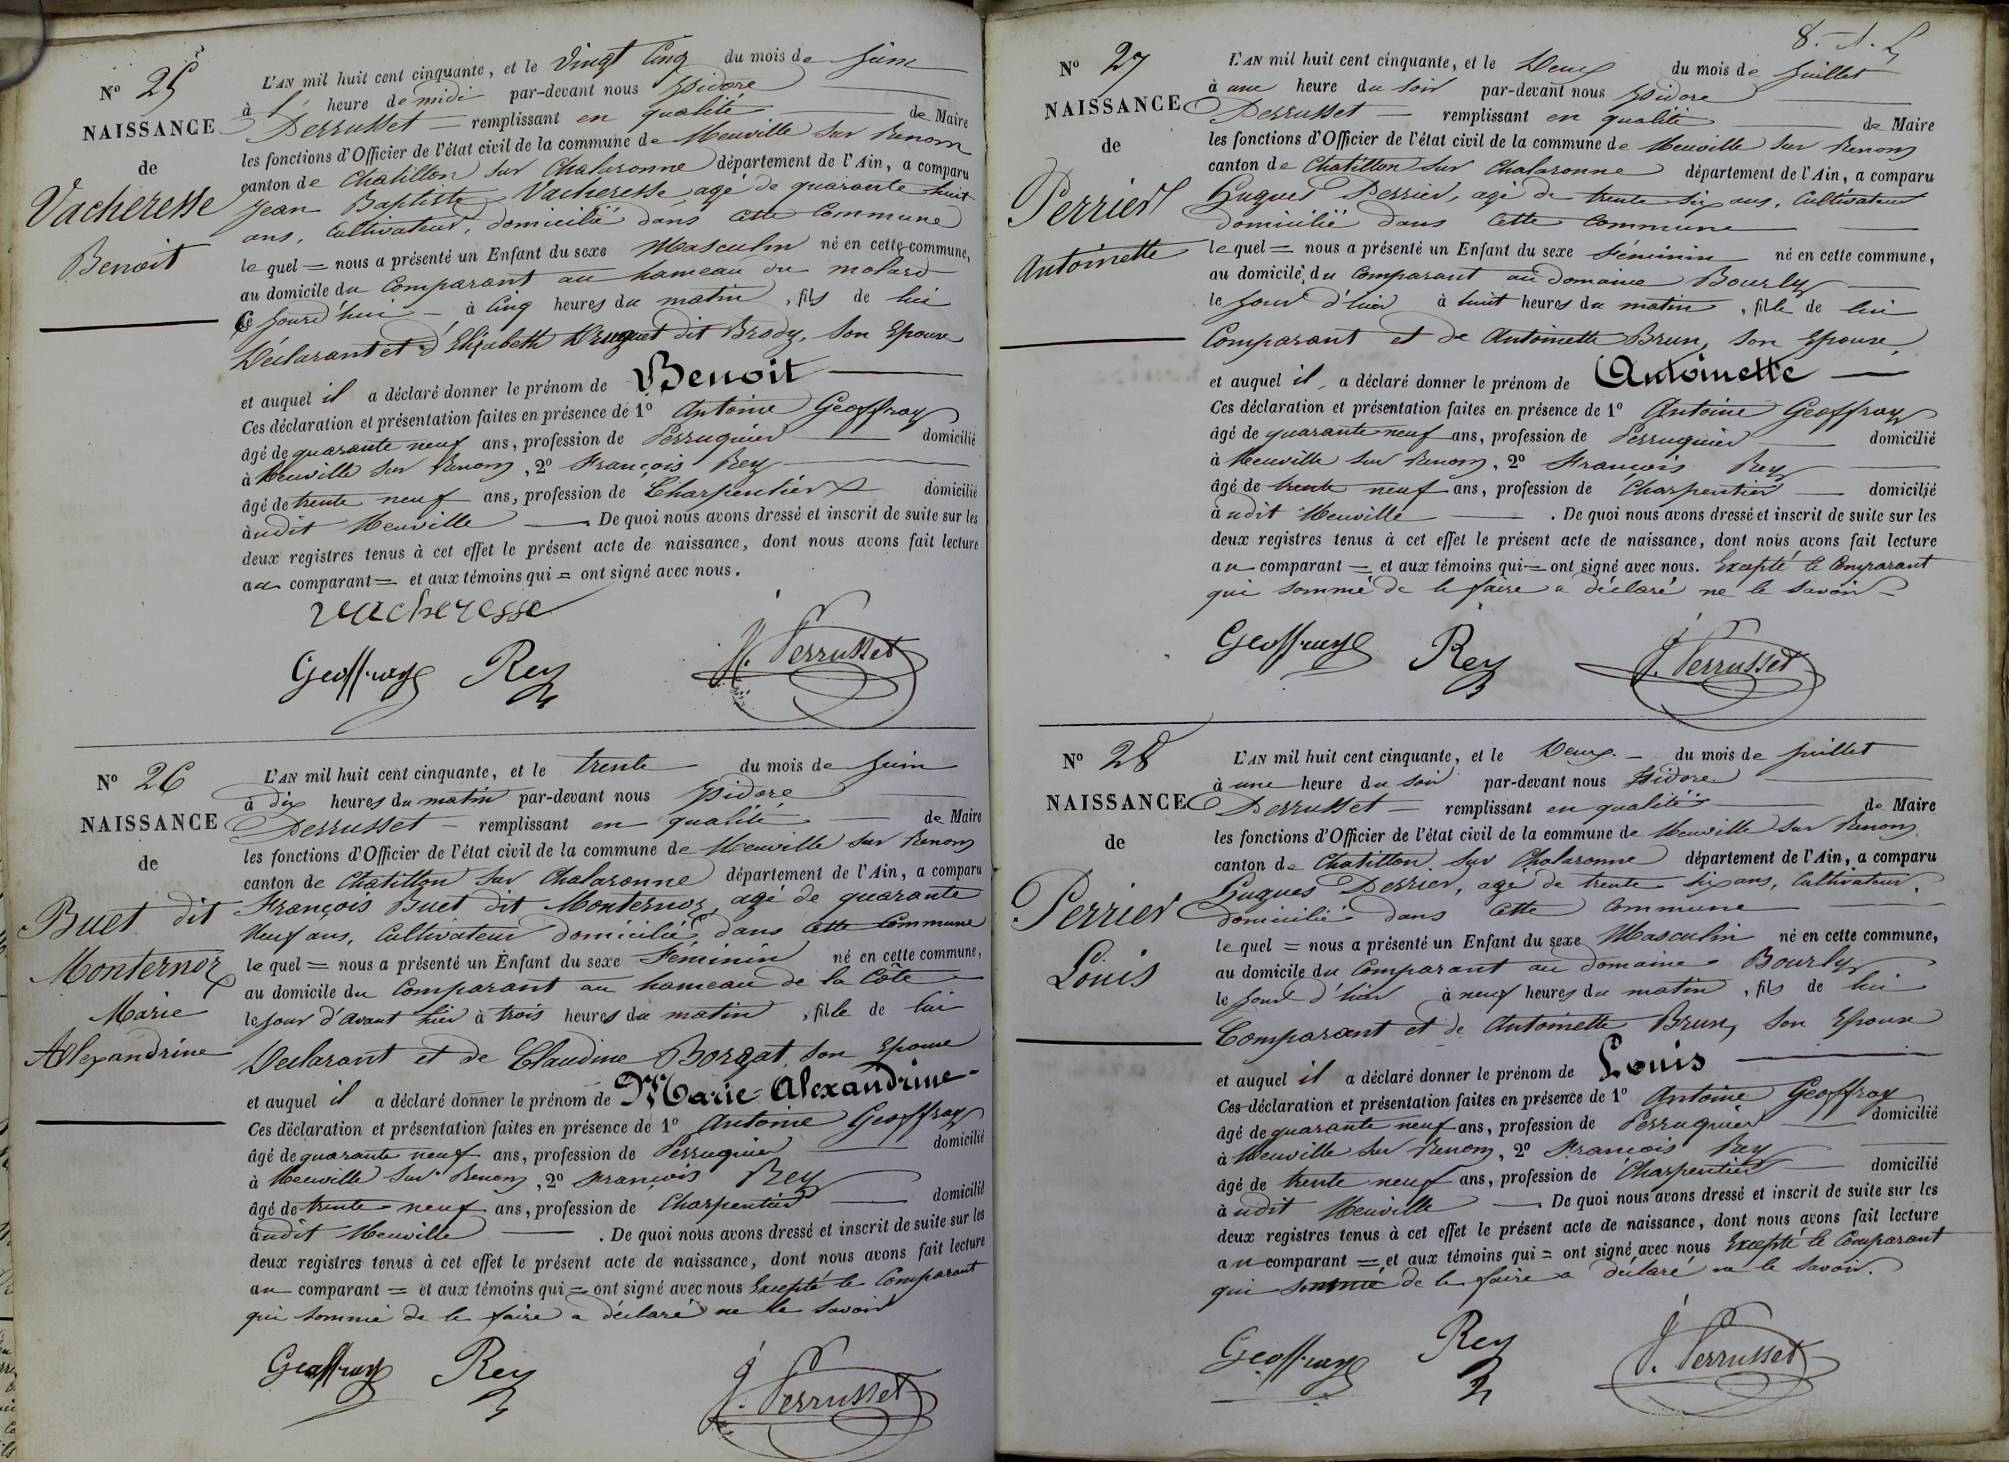 N° 25
NAISSANCE
de
Vacheresse
Benoit
L'AN mil huit cent cinquante, et le vingt Cinq du mois de Juin
à l' heure de midi par-devant nous Isidore
Perrusset remplissant en qualité de Maire
les fonctions d'Officier de l'état civil de la commune de Neuville sur Renom
canton de Chatillon sur Chalaronne département de l'Ain, a comparu
Jean Baptiste Vacheresse, agé de quarante huit
ans, Cultivateur, domicilié dans cette Commune
lequel = nous a présenté un Enfant du sexe Masculin né en cette commune,
au domicile du Comparant au hameau du molard
Ce Jourd'hui à Cinq heures du matin, fils de lui
Déclarant et d'Elisabeth Druguet dit Brody, son Epouse
et auquel il a déclaré donner le prénom de Benoit
Ces déclaration et présentation faites en présence de 1° Antoine Geoffray
âgé de quarante neuf ans, profession de Perruquier domicilié
à Neuville sur Renom, 2° François Rey
âgé de trente neuf ans, profession de Charpentier domicilié
àudit Neuville . De quoi nous avons dressé et inscrit de suite sur les
deux registres tenus à cet effet le présent acte de naissance, dont nous avons fait lecture
au comparant = et aux témoins qui = ont signé avec nous.
vacheresse
Geoffray Rey J. Perrusset
N° 26
NAISSANCE
de
Buet dit
Monternoz
Marie
Alexandrine
L'AN mil huit cent cinquante, et le trente du mois de Juin
à dix heures du matin par-devant nous Isidore
Perrusset remplissant en qualité de Maire
les fonctions d'Officier de l'état civil de la commune de Neuville sur Renom
canton de Chatillon sur Chalaronne département de l'Ain, a comparu
François Buet dit Monternoz, agé de quarante
Neuf ans, Cultivateur domicilié, dans cette Commune
lequel = nous a présenté un Enfant du sexe Féminin né en cette commune,
au domicile du Comparant au hameau de la Côte
le Jour d'avant hier à trois heures du matin, fille de lui
Déclarant et de Claudine Borgat, son Epouse
et auquel il a déclaré donner le prénom de Marie-Alexandrine
Ces déclaration et présentation faites en présence de 1° Antoine Geoffray
âgé de quarante neuf ans, profession de Perruquier domicilié
à Neuville sur Renom, 2° François Rey
âgé de trente neuf ans, profession de Charpentier domicilié
àudit Neuville . De quoi nous avons dressé et inscrit de suite sur les
deux registres tenus à cet effet le présent acte de naissance, dont nous avons fait lecture
au comparant = et aux témoins qui = ont signé avec nous Excepté le Comparant
qui sommé de le faire a déclaré ne le savoir
Geoffray Rey J. Perrusset
N° 27
NAISSANCE
de
Perrier
Antoinette
L'AN mil huit cent cinquante, et le Deux du mois de Juillet
à une heure du soir par-devant nous Isidore
Perrusset remplissant en qualité de Maire
les fonctions d'Officier de l'état civil de la commune de Neuville sur Renom
canton de Chatillon sur Chalaronne département de l'Ain, a comparu
Hugues Perrier, agé de trente six ans, Cultivateur
domicilié dans cette Commune
lequel = nous a présenté un Enfant du sexe féminin né en cette commune,
au domicile du Comparant au domaine Bourly
le Jour d'hier à huit heures du matin, fille de lui
Comparant et de Antoinette Brun, son Epouse,
et auquel il a déclaré donner le prénom de Antoinette
Ces déclaration et présentation faites en présence de 1° Antoine Geoffray
âgé de quarante neuf ans, profession de Perruquier domicilié
à Neuville sur Renom, 2° François Rey
âgé de trente neuf ans, profession de Charpentier domicilié
àudit Neuville . De quoi nous avons dressé et inscrit de suite sur les
deux registres tenus à cet effet le présent acte de naissance, dont nous avons fait lecture
au comparant = et aux témoins qui = ont signé avec nous. Excepté le Comparant
qui sommé de le faire a déclaré ne le savoir
Geoffray Rey J. Perrusset
N° 28
NAISSANCE
de
Perrier
Louis
L'AN mil huit cent cinquante, et le Deux du mois de Juillet
à une heure du soir par-devant nous Isidore
Perrusset remplissant en qualité de Maire
les fonctions d'Officier de l'état civil de la commune de Neuville sur Renom
canton de Chatillon sur Chalaronne département de l'Ain, a comparu
Hugues Perrier, agé de trente six ans, Cultivateur,
domicilié dans cette Commune
lequel = nous a présenté un Enfant du sexe Masculin né en cette commune,
au domicile du Comparant au domaine Bourly
le Jour d'hier à neuf heures du matin, fils de lui
Comparant et de Antoinette Brun, son Epouse
et auquel il a déclaré donner le prénom de Louis
Ces déclaration et présentation faites en présence de 1° Antoine Geoffray
âgé de quarante neuf ans, profession de Perruquier domicilié
à Neuville sur Renom, 2° François Rey
âgé de trente neuf ans, profession de Charpentier domicilié
àudit Neuville . De quoi nous avons dressé et inscrit de suite sur les
deux registres tenus à cet effet le présent acte de naissance, dont nous avons fait lecture
au comparant = et aux témoins qui = ont signé avec nous Excepté le Comparant
qui sommé de le faire a déclaré ne le savoir.
Geoffray Rey J. Perrusset